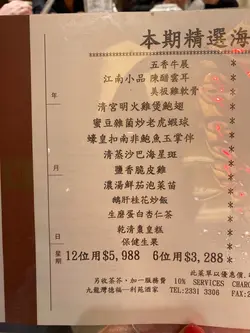 本期精選海
五香牛展
江南小品 陳醋雲耳
美極雞軟骨
清宮明火雞煲鮑翅
蜜豆雜菌炒老虎蝦球
蠔皇扣南非鮑魚玉掌伴
清蒸沙巴海星斑
鹽香脆皮雞
濃湯鮮茄泡菜苗
鵝肝桂花炒飯
生磨蛋白杏仁茶
乾清棗皇糕
保健生果
12位用$5,988 6位用$3,288 *
年
月
日
星期
此菜單以優惠價
另收茶芥‧加一服務費 10% SERVICES CHARG
九龍灣德福一利苑酒家 TEL:2331 3306 FAX:2